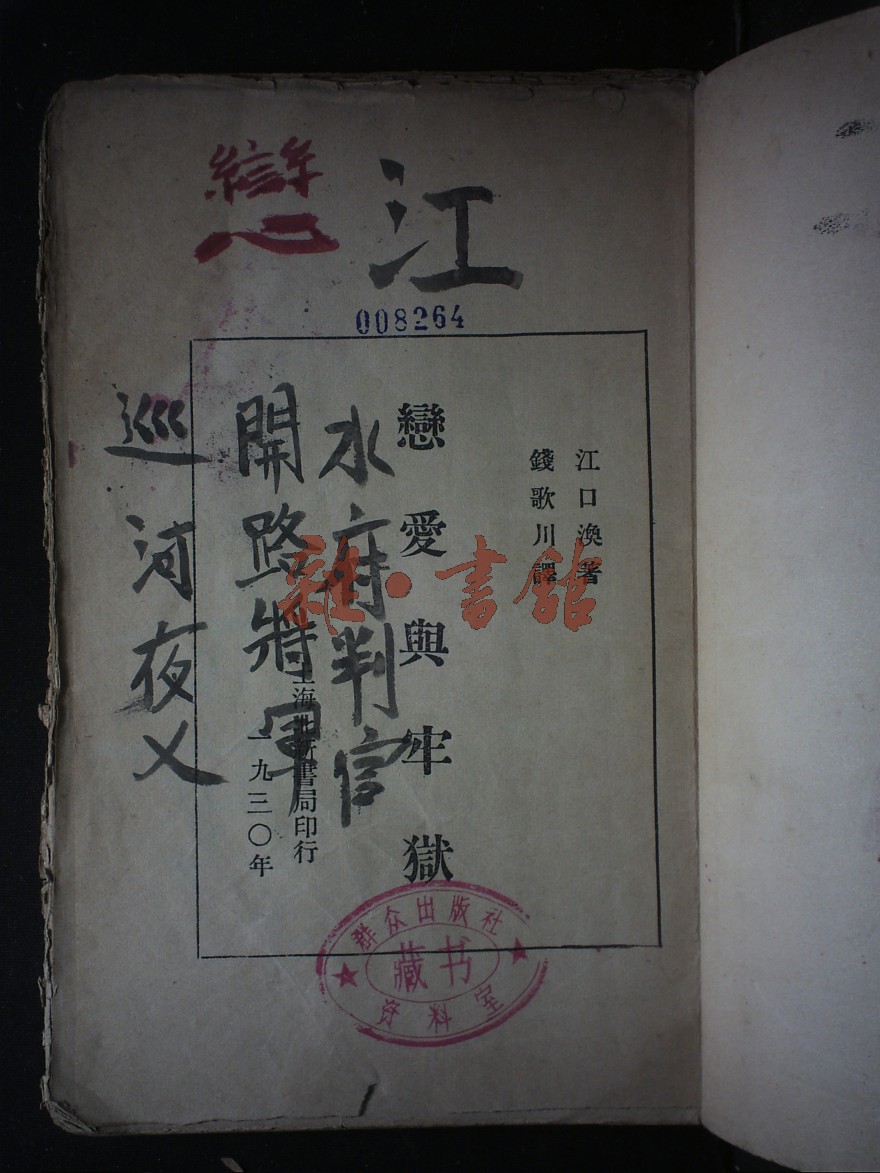 戀
江
008264
江口渙著
錢歌川譯
戀愛與牢獄
水府判官
開路將軍
巡河夜乂
上海北新書局印行
一九三〇年
雜·書館
群众出版社
藏书
资料室